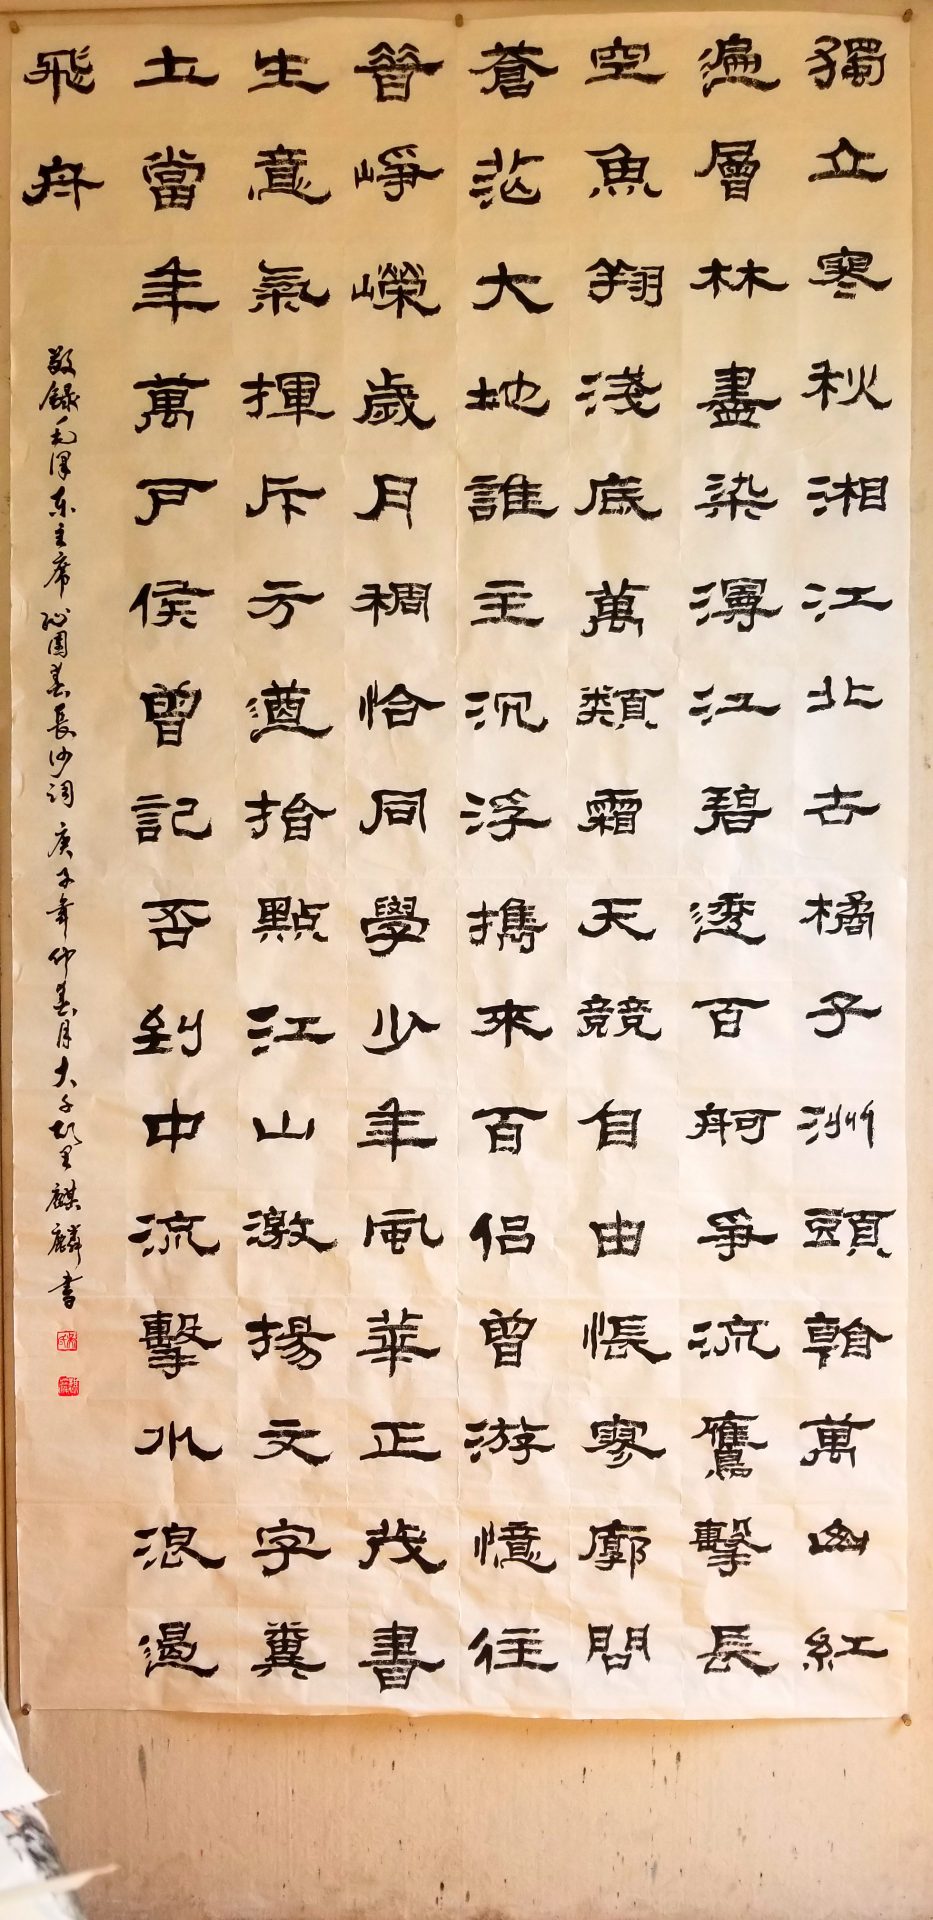 獨立寒秋湘江北去橘子洲頭看萬山紅
遍層林盡染漫江碧透百舸爭流鷹擊長
空魚翔淺底萬類霜天競自由悵寥廓問
蒼茫大地誰主沉浮攜來百侶曾游憶往
昔崢嶸歲月稠恰同學少年風華正茂書
生意氣揮斥方遒指點江山激揚文字糞
土當年萬戶侯曾記否到中流擊水浪遏
飛舟
敬録毛澤东主席沁園春長沙詞庚子年仲春月大千麒麟書